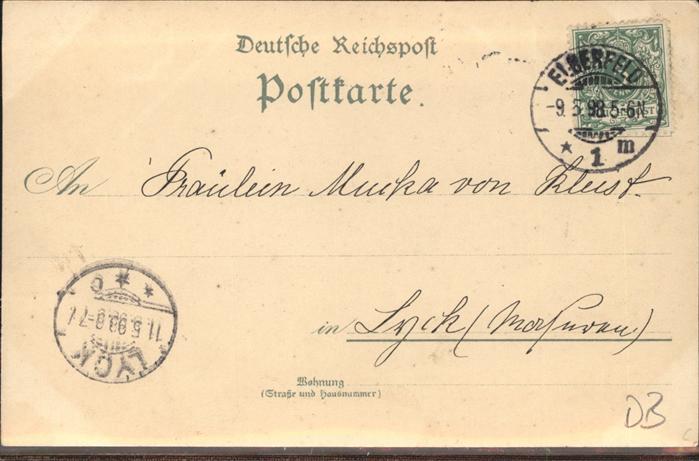 Deutsche Reichspost
Postkarte.
ELBERFELD
-9.5.98.5-6N.
* 1 m
An Fräulein Mucka von Kleist.
in Lyck (Masuren)
LYCK
11.5.98.6-7V.
* * c
Wohnung
(Straße und Hausnummer)
DB